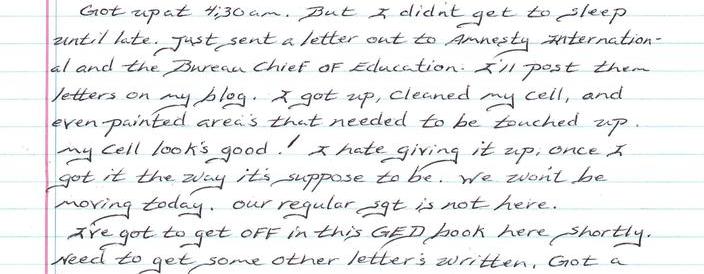 Got up at 4:30 am. But I didnt get to sleep
until late. Just sent a letter out to Amnesty Internation-
al and the Bureau Chief of Education. I'll post them
letters on my blog. I got up, cleaned my cell, and
even painted area's that needed to be touched up.
my cell look's good! I hate giving it up, once I
got it the way it's suppose to be. We won't be
moving today. Our regular sgt is not here.
I've got to get off in this GED book here shortly.
Need to get some other letter's written. Got a